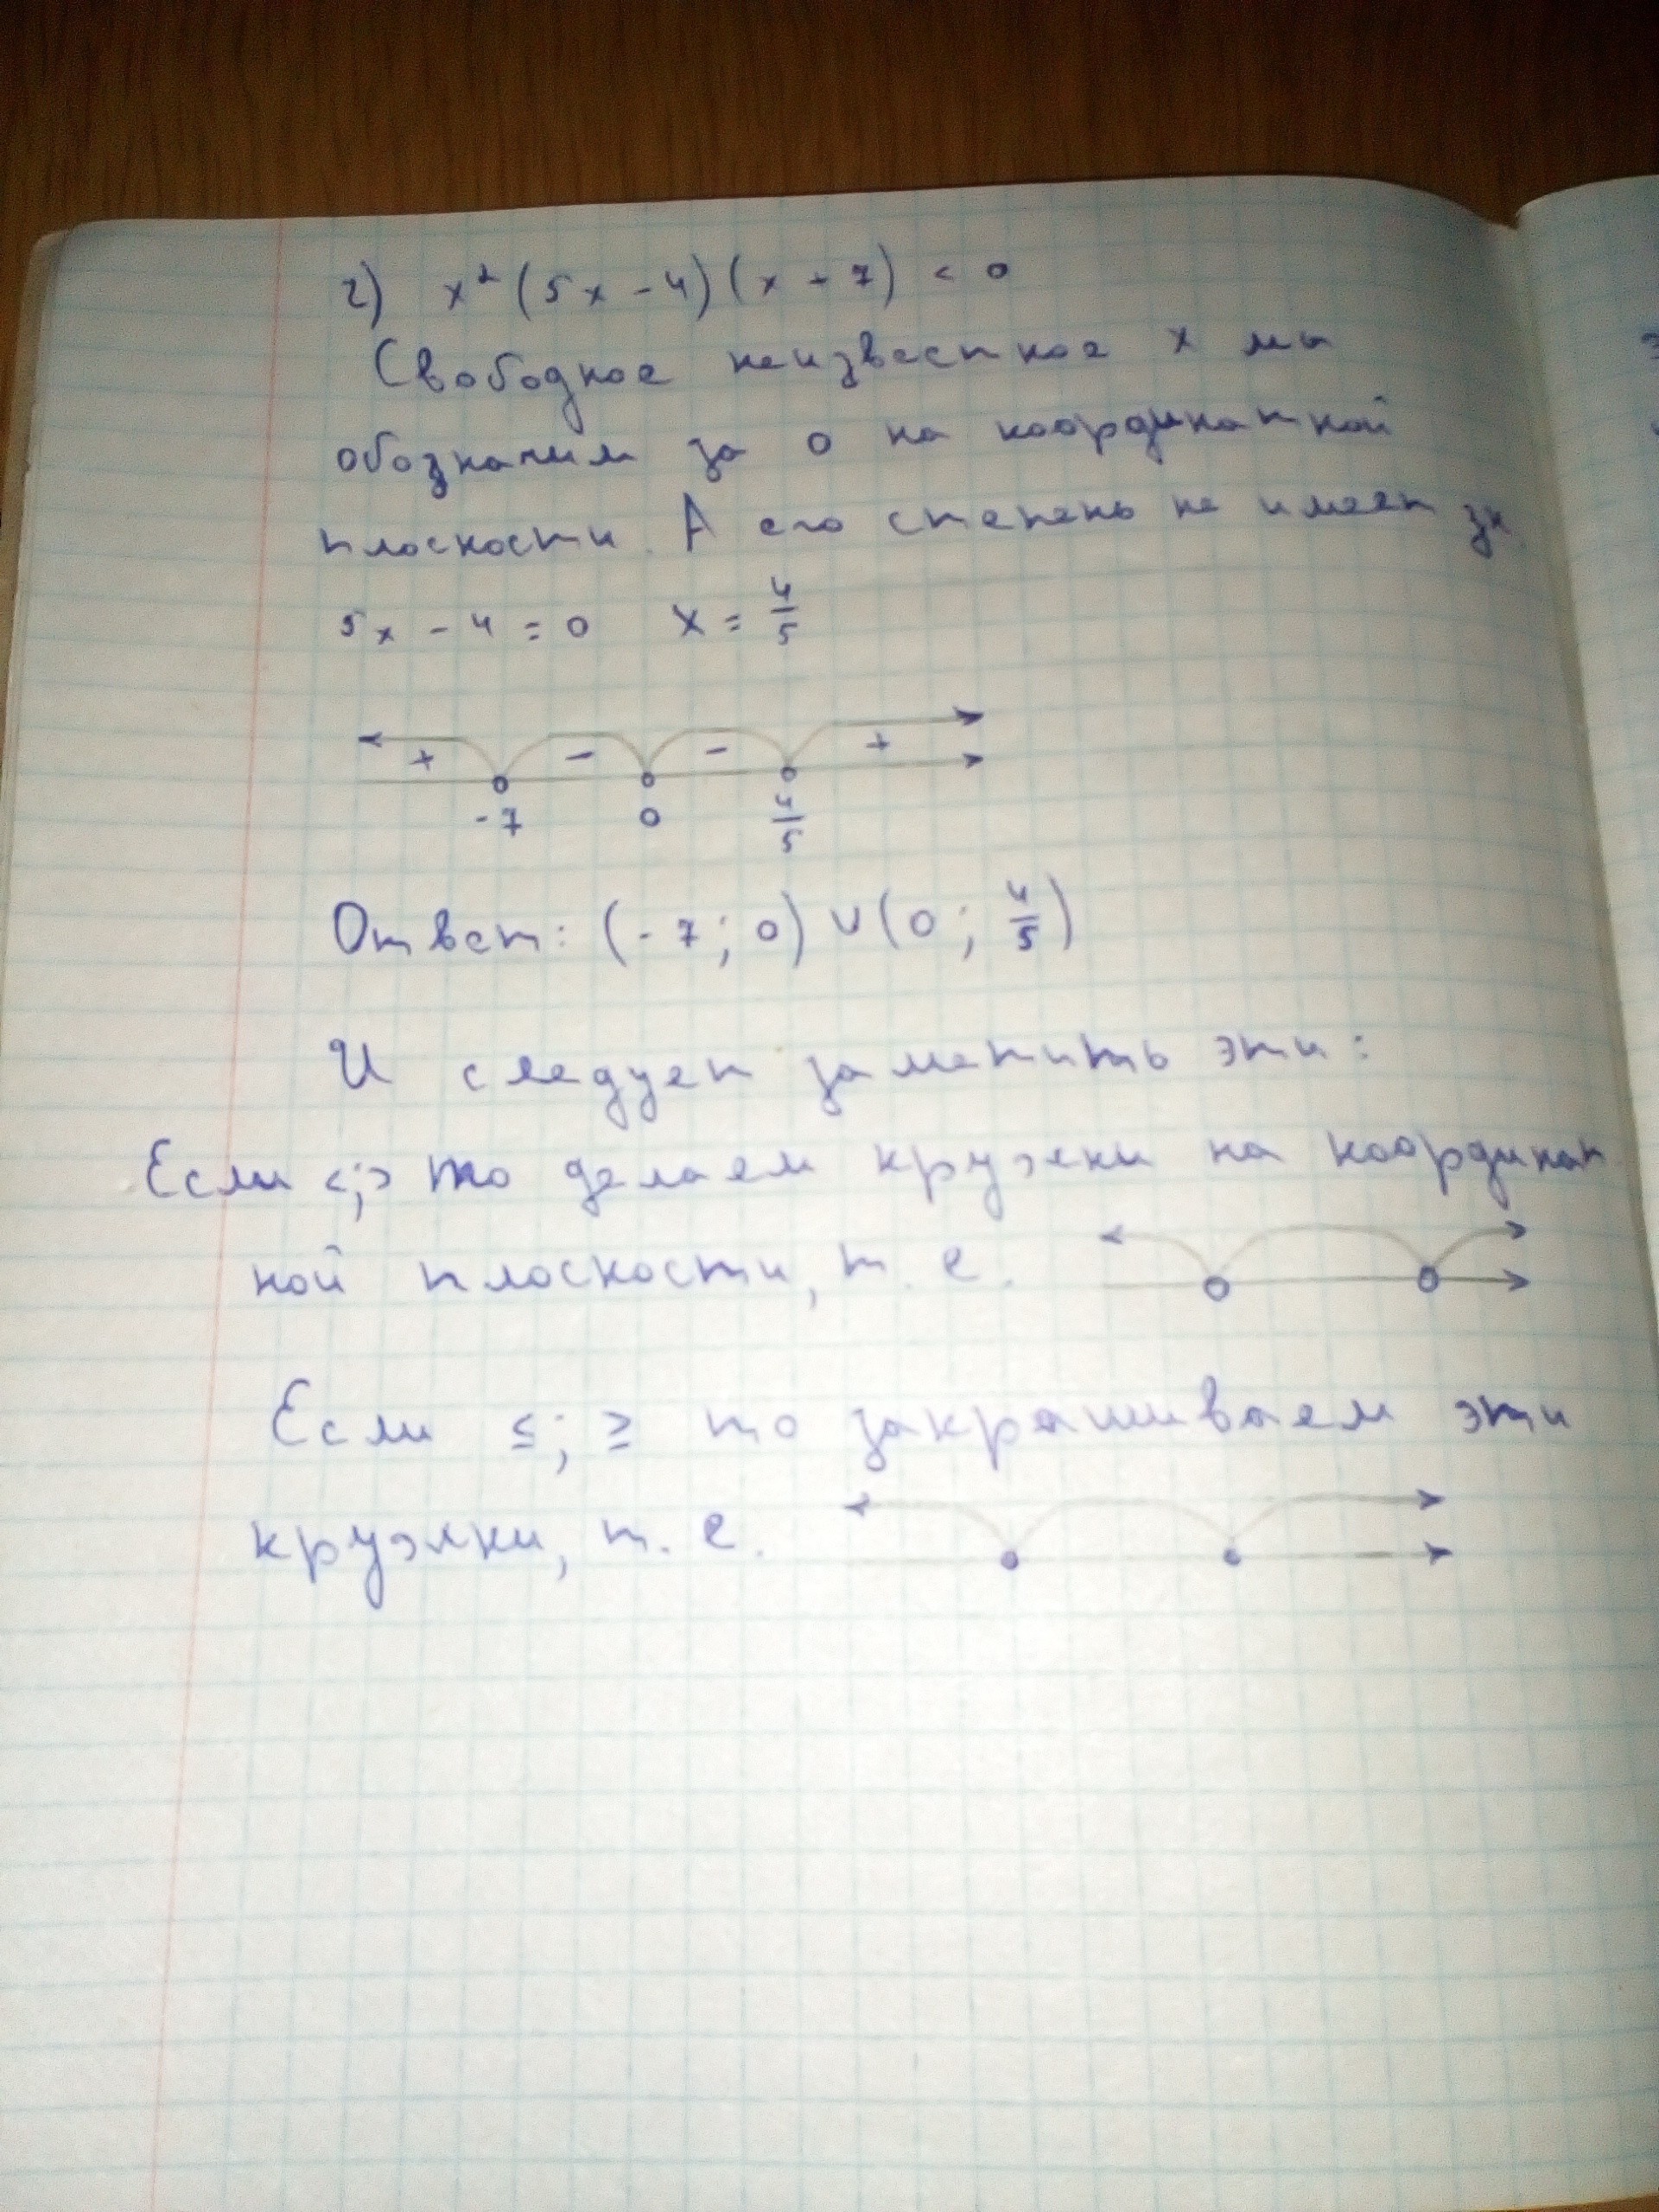 г) x² (5x - 4) (x + 7) < 0
Свободное неизвестное x мы
обозначим за 0 на координатной
плоскости. А его степень не имеет зн.
5x - 4 = 0 x = 4/5
+ - - +
-7 0 4/5
Ответ: (-7; 0) ∪ (0; 4/5)
И следует заметить эти:
Если <;> то делаем кружки на координат
ной плоскости, т. е.
Если ≤; ≥ то закрашиваем эти
кружки, т. е.